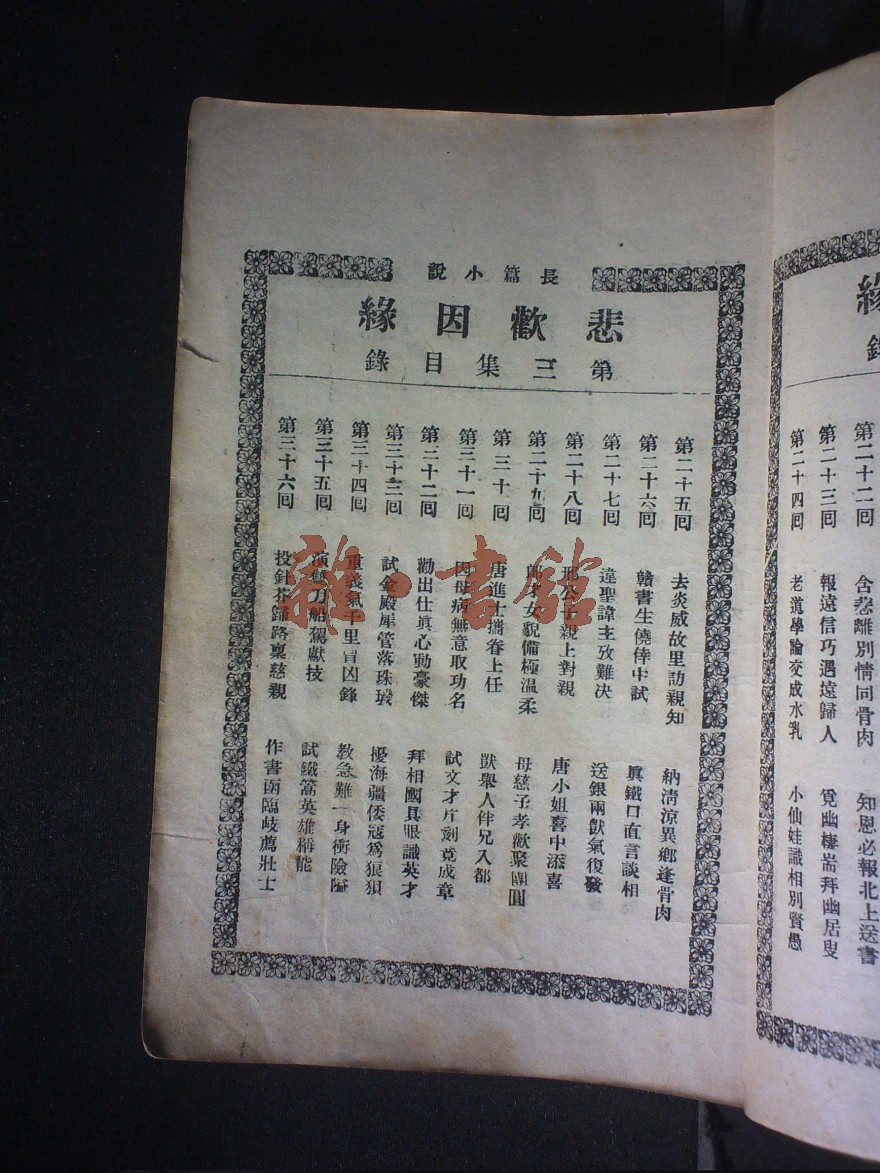 長篇小說
悲歡因緣
第三集目錄
第二十五回 去炎威故里訪親知 納淸涼異鄉逢骨肉
第二十六回 贛書生僥倖中試 眞鐵口直言談相
第二十七回 違聖諱主攷難决 送銀兩獃氣復發
第二十八回 邢公子親上對親 唐小姐喜中添喜
第二十九回 郎才女貌備極溫柔 母慈子孝歡聚團圓
第三十回 唐進士攜眷上任 獃舉人伴兄入都
第三十一回 因母病無意取功名 試文才片刻竟成章
第三十二回 勸出仕眞心動豪傑 拜相國具眼識英才
第三十三回 試金殿犀管落珠璣 擾海疆倭寇爲狼狽
第三十四回 重義氣千里冒凶鋒 救急難一身衝險隘
第三十五回 演雙刀船駕獻技 試鐵篙英雄稱能
第三十六回 投針芥歸路稟慈親 作書函臨歧薦壯士
緣
錄
第二十二回 含悲離別情同骨肉 知恩必報北上送書
第二十三回 報遠信巧遇遠歸人 覓幽棲耑拜幽居叟
第二十四回 老道學論交成水乳 小仙娃識相別賢愚
雜·書館